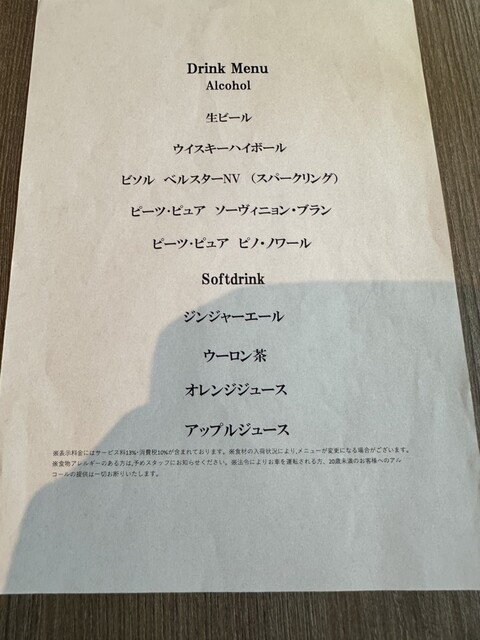 Drink Menu
Alcohol
生ビール
ウイスキーハイボール
ビソル ベルスターNV （スパークリング）
ピーツ・ピュア ソーヴィニョン・ブラン
ピーツ・ピュア ピノ・ノワール
Softdrink
ジンジャーエール
ウーロン茶
オレンジジュース
アップルジュース
※表示料金にはサービス料13%・消費税10%が含まれております。※食材の入荷状況により,メニューが変更になる場合がございます。
※食物アレルギーのある方は,予めスタッフにお知らせください。※法令によりお車を運転される方、20歳未満のお客様へのアル
コールの提供は一切お断りいたします。